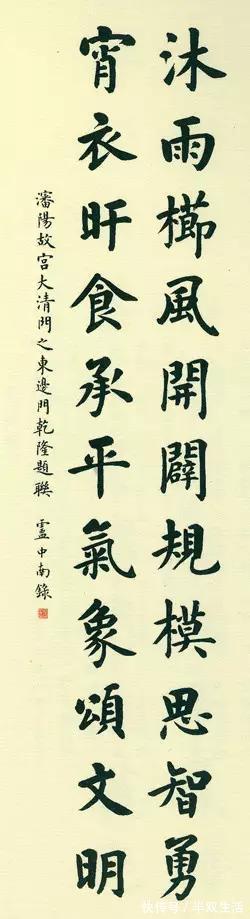 沐雨櫛風開闢規模思智勇
宵衣旰食承平氣象頌文明
瀋陽故宮大清門之東邊門乾隆題聯 盧中南錄
快传号/半双生活